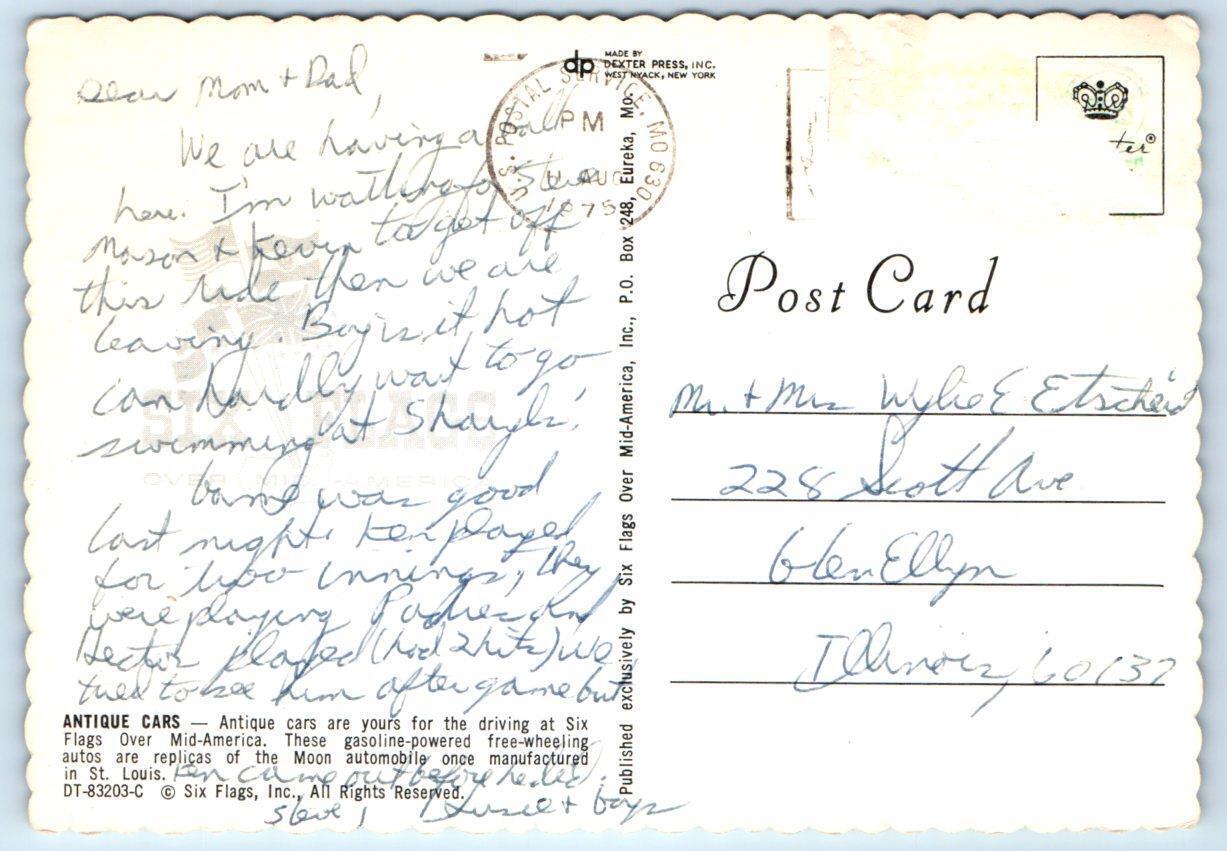 Dear Mom + Dad,
We are having a ball
here. I'm waiting for Steve
Mason & Kevin to get off
this ride then we are
leaving. Boy is it hot
can hardly wait to go
swimming at
Game was good
last night. Ken played
for two innings, they
were playing Padres and
Hector played (had 2 hits) we
tried to see him after game but
Ken came out before he did.
Steve, + boys
SIX FLAGS
OVER MID-AMERICA
ANTIQUE CARS — Antique cars are yours for the driving at Six
Flags Over Mid-America. These gasoline-powered free-wheeling
autos are replicas of the Moon automobile once manufactured
in St. Louis.
DT-83203-C © Six Flags, Inc., All Rights Reserved.
dp
MADE BY
DEXTER PRESS, INC.
WEST NYACK, NEW YORK
U.S. POSTAL SERVICE, MO 630
PM
AUG
1975
Published exclusively by Six Flags Over Mid-America, Inc., P.O. Box 248, Eureka, Mo.
ter®
Post Card
Mr. + Mrs Wylie E Etscheid
228 Scott Ave
Glen Ellyn
Illinois, 60137